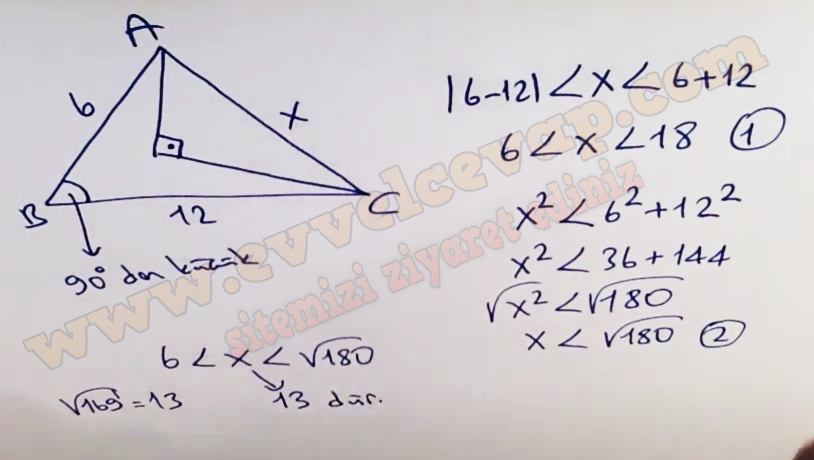 A
6
x
B
12
C
90° den küçük
|6-12| < x < 6+12
6 < x < 18 ①
x² < 6² + 12²
x² < 36 + 144
√x² < √180
x < √180 ②
6 < x < √180
√169 = 13
13 dür.
www.evvelcevap.com
sitemizi ziyaret ediniz